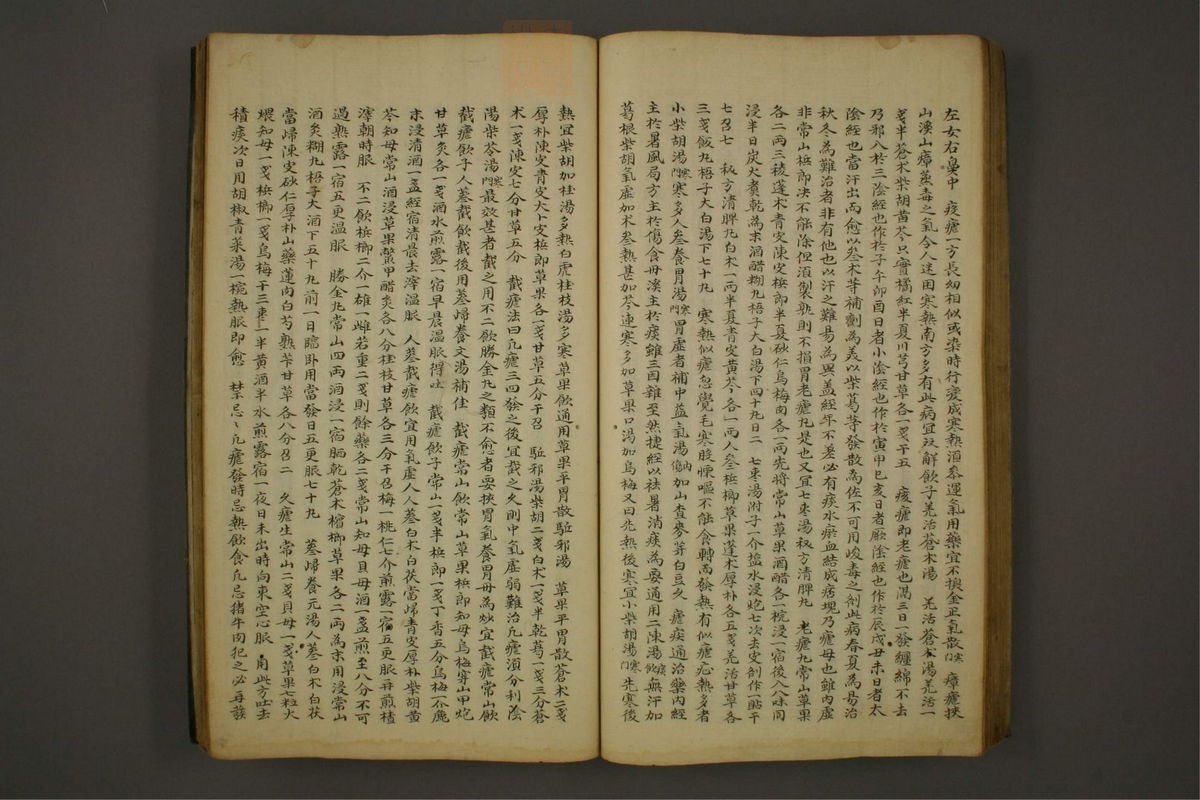 左女右㝵中 痎瘧一方長幼相似或染時行变成寒熱湏叅運氣用藥宜不換金正氣散門寒 瘴瘧挾
山溪山瘴蒸毒之氣令人迷困寒熱南方多有此病宜双解飲子羌活蒼朮湯 羌活蒼朮湯羌活一
戔半蒼朮柴胡黃芩只實橘紅半夏川芎甘草各一戔干五 痎瘧即老瘧也隔三日一發纏綿不去
乃邪入於三陰經也作於子午卯酉日者小陰經也作於寅申巳亥日者厥陰經也作於辰戌丑未日者太
陰經也當汗出而愈以叅朮等補劑為美以柴葛等發散為佐不可用峻毒之劑此病春夏為易治
秋冬為難治者非有他也以汗之難易為異盖經年不差必有痰水瘀血結成痞塊乃瘧母也雖內虛
非常山梹即决不能除但須製熟則不損胃老瘧丸是也又宜七枣湯秘方清脾丸 老瘧丸常山草果
各二両三稜蓬朮青皮陳皮梹即半夏砂仁烏梅肉各一両先將常山草果酒醋各一椀浸一宿後入八味同
浸半日炭火煑乾為末酒醋糊丸梧子大白湯下四十九日二 七枣湯附子一介盐水浸炮七次去皮剉作一貼干
七召七 秘方清脾丸白朮一両半夏青皮黃芩各一両人叄梹榔草果蓬朮厚朴各五戔羌活甘草各
三戔飯丸梧子大白湯下七十丸 寒熱似瘧忽覺毛寒股慄嘔不能食轉而發熱有似瘧疾熱多者
小柴胡湯門寒寒多人叄養胃湯門寒胃虛者補中益氣湯內傷加山査麥芽白豆久 瘧痰通治藥內經
主於暑風局方主於傷食丹溪主於痰雖三因雜至然捷經以祛暑消痰為要通用二陳湯痰飲無汗加
葛根柴胡氣虛加朮叄熱甚加芩連寒多加草果口湯加烏梅又曰先熱後寒宜小柴胡湯門寒先寒後
熱宜柴胡加桂湯多熱白虎桂枝湯多寒草果飲通用草果平胃散駈邪湯 草果平胃散蒼朮二戔
厚朴陳皮青皮大卜皮梹即草果各一戔甘草五分干召 駈邪湯柴胡二戔白朮一戔半乾葛一戔三分蒼
朮一戔陳皮七分甘草五分 截瘧法曰凢瘧三四發之後宜截之久則中氣虛弱難治凢瘧須分利陰
湯柴苓湯門寒最效甚者截之用不二飲勝金丸之類不愈者要挾胃氣養胃母為妙宜截瘧常山飲
截瘧飲子人蔘截飲截後用蔘歸養文湯補住 截瘧常山飲常山草果梹即知母烏梅穿山甲炮
甘草炙各一戔酒水煎露一宿早晨温服得吐 截瘧飲子常山一戔半梹即一戔丁香五分烏梅一介麁
末浸淸酒一盞經宿淸晨去滓温服 人蔘截瘧飲宜用氣虛人人蔘白朮白茯當歸青皮厚朴柴胡黃
芩知母常山酒浸草果鱉甲醋炙各八分桂枝甘草各三分干召梅一桃仁七介煎露一宿五更服再煎楂
滓朝時服 不二飲梹榔二介一雄一雌若重二戔則餘藥各二戔常山知母貝母酒一盞煎至八分不可
過熟露一宿五更温服 勝金丸常山四両酒浸一宿晒乾蒼朮檳榔草果各二両為末用浸常山
酒炙糊丸梧子大酒下五十丸前一日臨卧用當發日五更服七十丸 蔘歸養元湯人蔘白朮白茯
當歸陳皮砂仁厚朴山藥蓮肉白芍熟芐甘草各八分召二 久瘧生常山二戔貝母一戔草果七粒火
煨知母一戔梹榔一戔烏梅干三枣二半黃酒半水煎露宿一夜日未出時向東空心服用此方吐去
積痰次日用胡椒青菜湯一椀熱服即愈 禁忌、凢瘧發時忌熱飲食凢忌猪牛肉犯之必再發